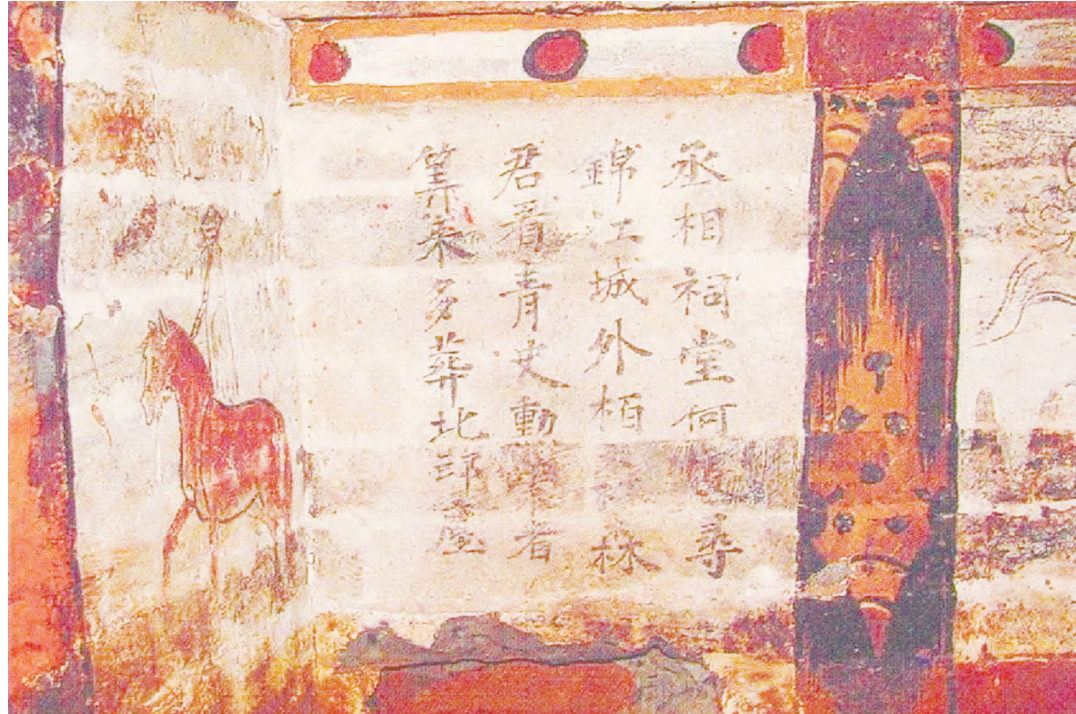 丞相祠堂何尋
錦江城外栢株
君看青史動者
筭来多葬北邙